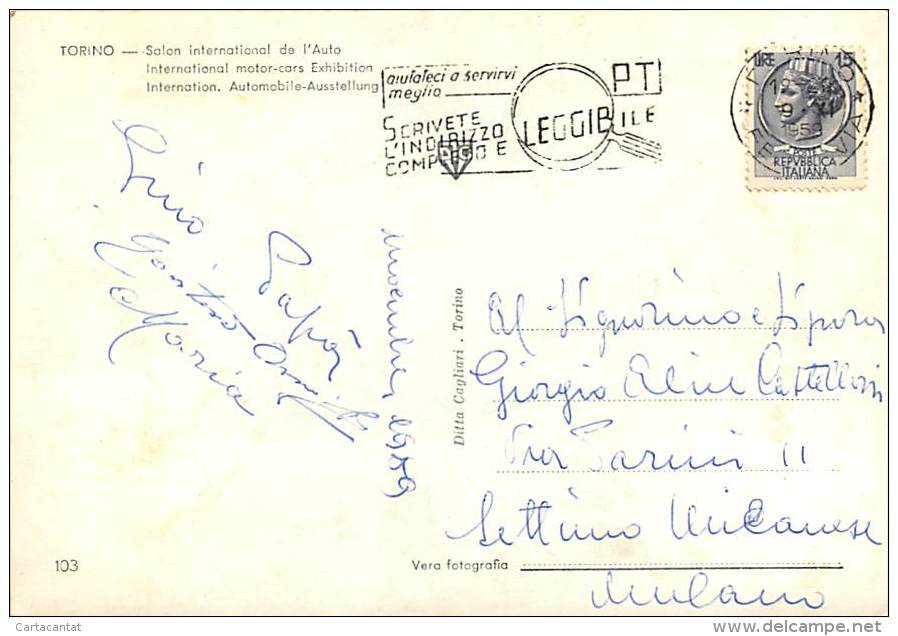 TORINO — Salon international de l'Auto
International motor-cars Exhibition
Internation. Automobile-Ausstellung
aiutateci a servirvi
meglio
SCRIVETE
L'INDIRIZZO
COMPLETO E LEGGIBILE
PT
LIRE 15
1959
POSTE
REPVBBLICA
ITALIANA
Lino
Papà
Maria
novembre 1959
Ditta Cagliari - Torino
Al Signorino e Sig.ra
Giorgio
Via Parini 11
Settimo Milanese
Milano
103
Vera fotografia
Cartacantat
delcampe.net